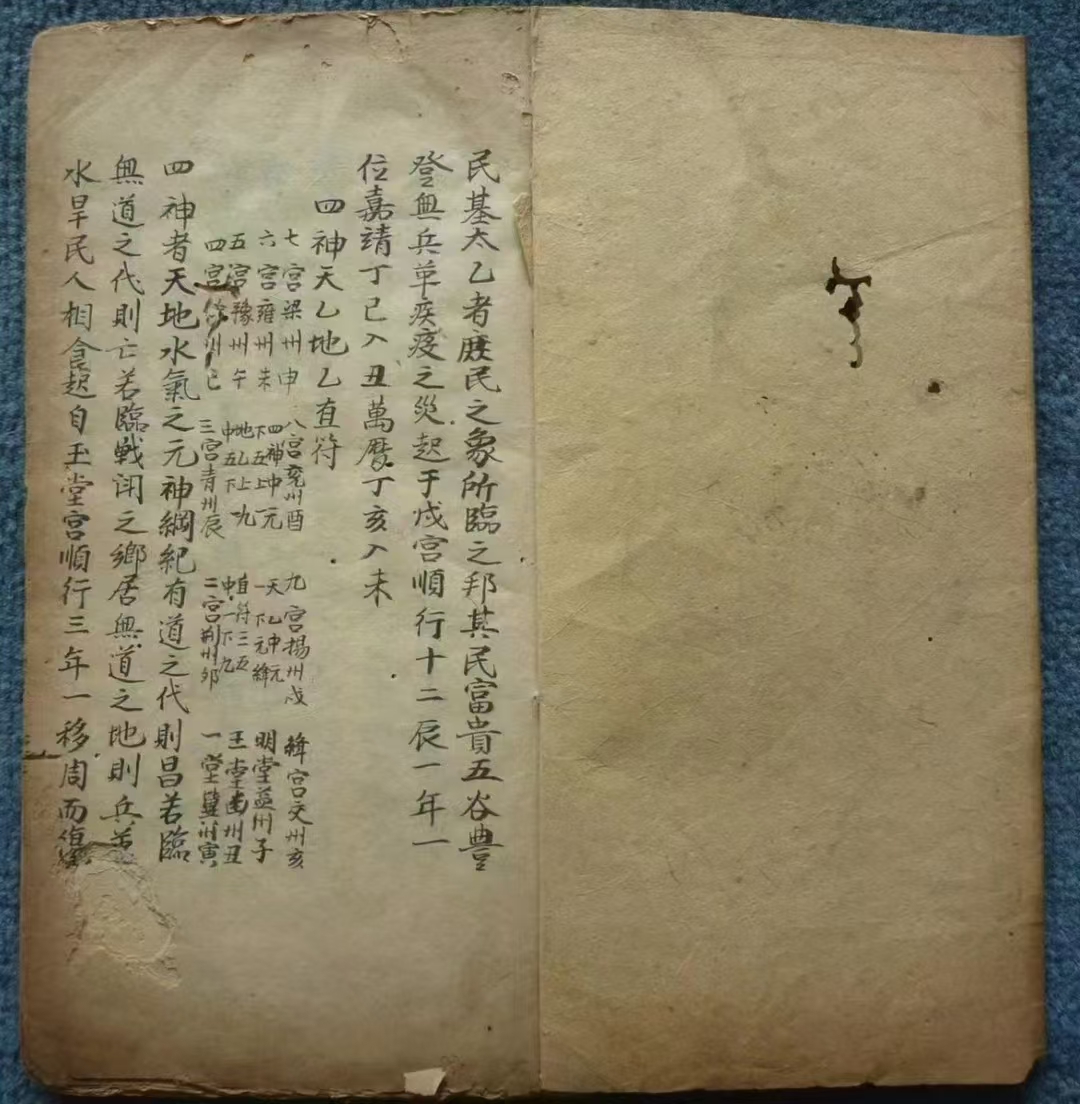 民基太乙者庶民之象所臨之邦其民富貴五谷豊
登無兵革疾疫之災起于戌宮順行十二辰一年一
位嘉靖丁巳入丑萬曆丁亥入未
四神天乙地乙直符
七宮梁州申
八宮兖州酉
九宮揚州戌
絳宮交州亥
六宮雍州未
四神中一元
下五上
天乙中元
一下元絳
明堂益州子
五宮豫州午
地乙上九
中五下一
直符三五
中一下九
玉堂州丑
四宮州巳
三宮青州辰
二宮荆州卯
一堂州寅
四神者天地水氣之元神綱紀有道之代則昌若臨
無道之代則亡若臨戰闘之鄉居無道之地則兵
水旱民人相食起自玉堂宮順行三年一移周而復